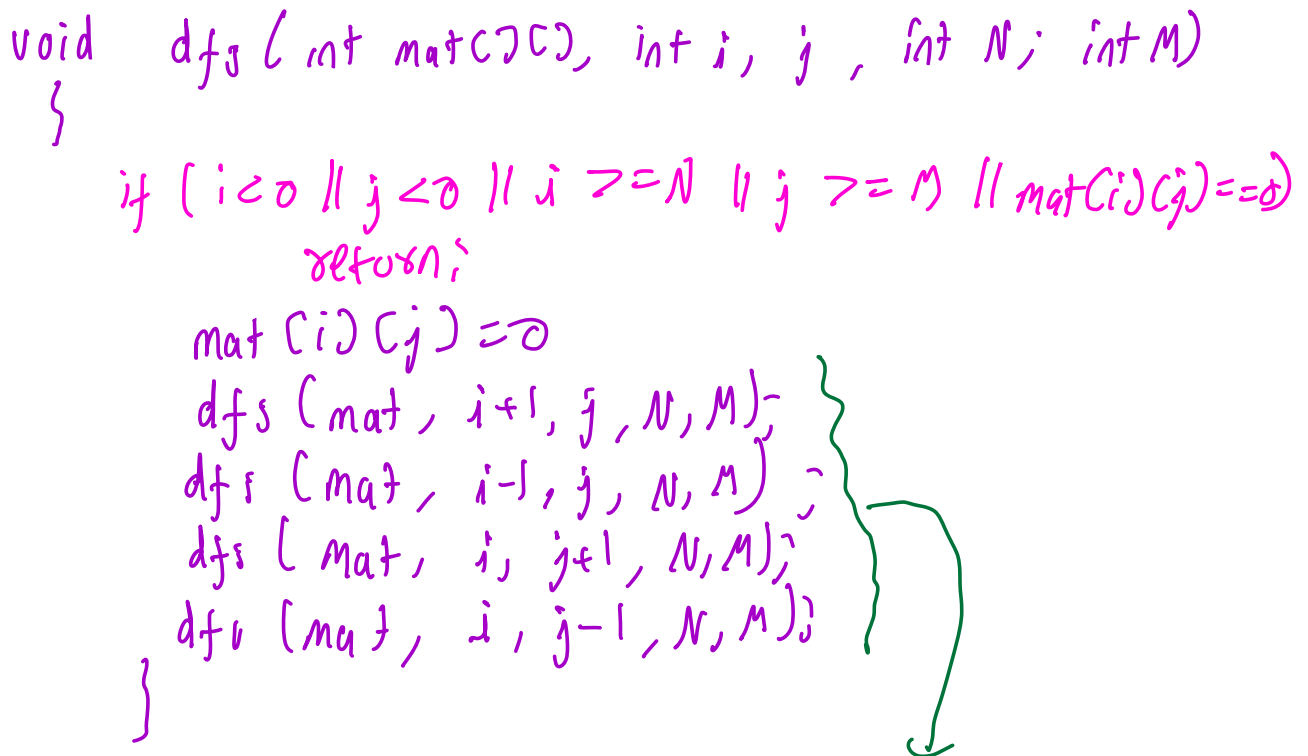 void dfs ( int mat[][], int i, j, int N, int M)
{
if ( i<0 || j<0 || i >=N || j >= M || mat[i][j]==0)
return;
mat [i] [j] =0
dfs (mat, i+1, j, N, M);
dfs (mat, i-1, j, N, M) ;
dfs ( mat, i, j+1, N, M);
dfs (mat, i, j-1, N, M);
}